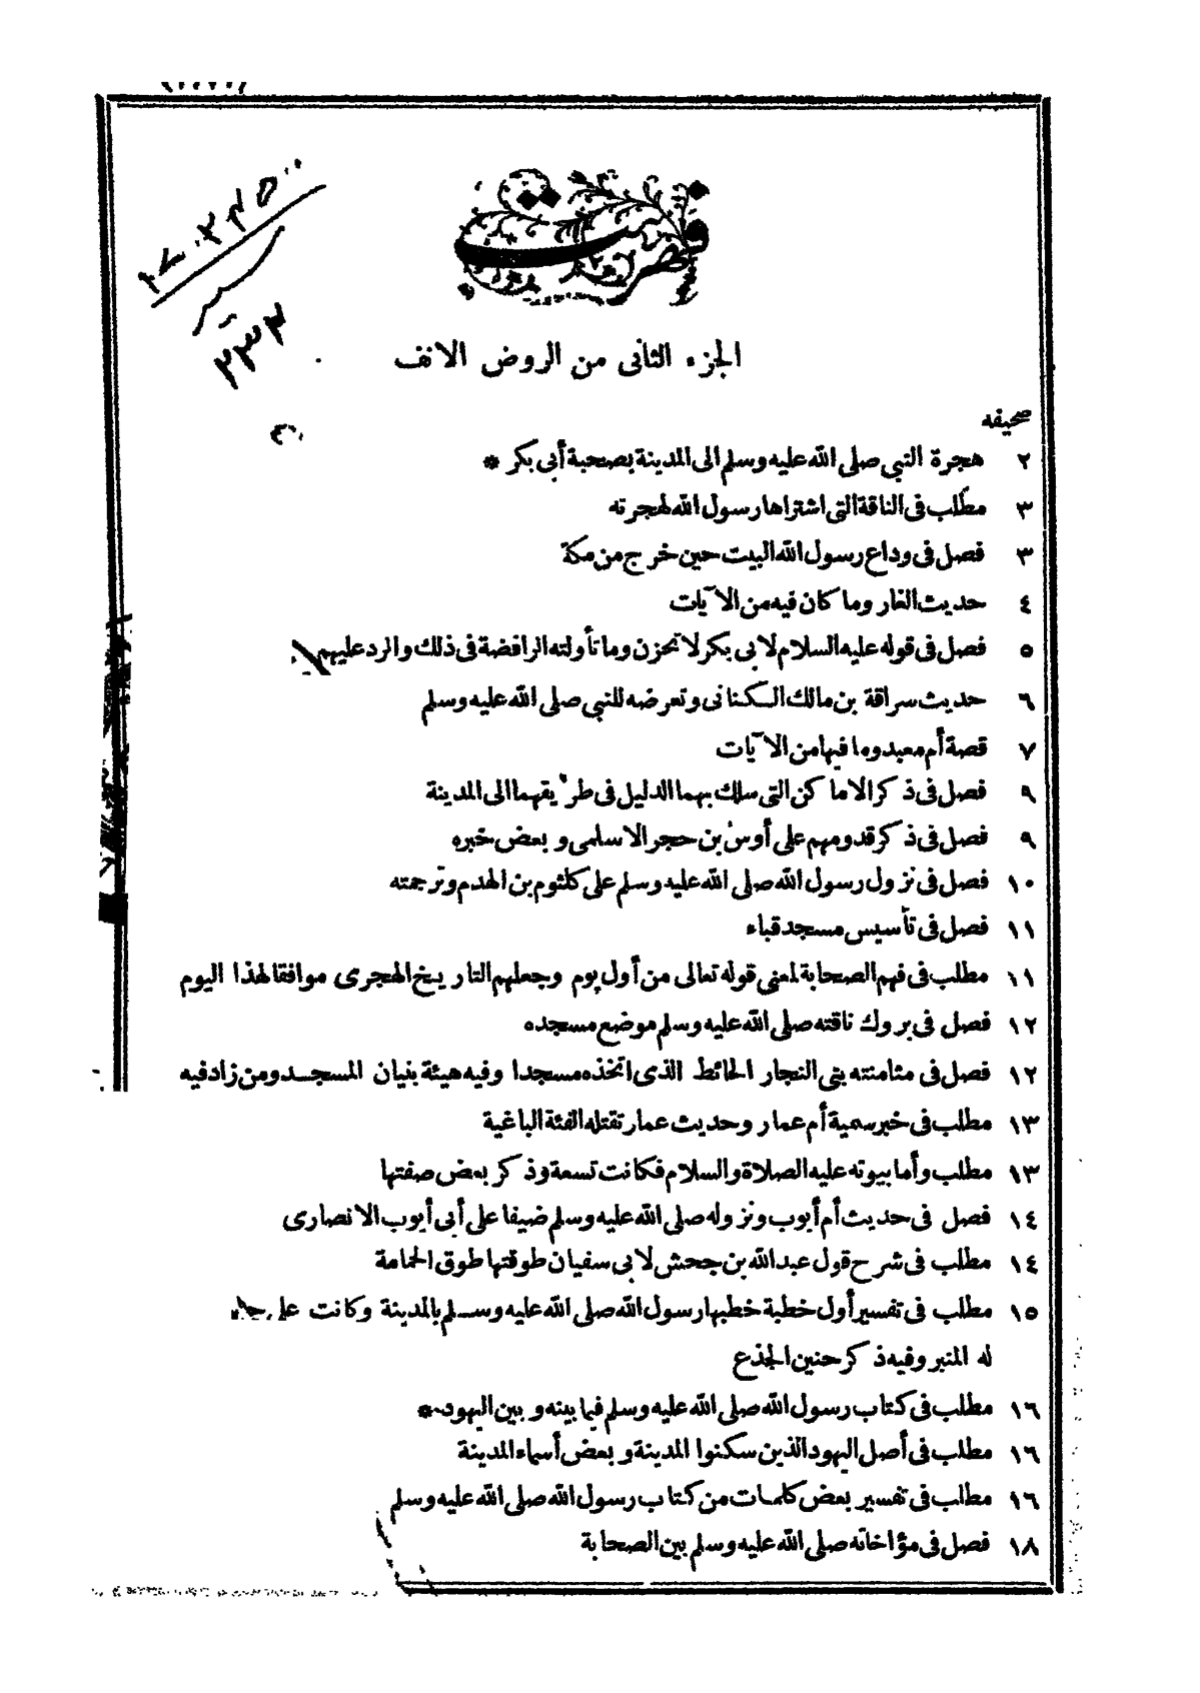 فهرست
الجزء الثانى من الروض الانف
صحيفه
٢ هجرة النبي صلى الله عليه وسلم الى المدينة بصحبة أبى بكر *
٣ مطلب فى الناقة التى اشتراها رسول الله لهجرته
٣ فصل فى وداع رسول الله البيت حين خرج من مكة
٤ حديث الغار وما كان فيه من الآيات
٥ فصل فى قوله عليه السلام لابى بكر لا تحزن وما تأولته الرافضة فى ذلك والرد عليهم
٦ حديث سراقة بن مالك الكنانى وتعرضه للنبى صلى الله عليه وسلم
٧ قصة أم معبد وما فيها من الآيات
٩ فصل فى ذكر الاماكن التى سلك بهما الدليل فى طريقهما الى المدينة
٩ فصل فى ذكر قدومهم على أوس بن حجر الاسلمى وبعض خبره
١٠ فصل فى نزول رسول الله صلى الله عليه وسلم على كلثوم بن الهدم وترجمته
١١ فصل فى تأسيس مسجد قباء
١١ مطلب فى فهم الصحابة لمعنى قوله تعالى من أول يوم وجعلهم التاريخ الهجرى موافقا لهذا اليوم
١٢ فصل فى بروك ناقته صلى الله عليه وسلم موضع مسجده
١٢ فصل فى مثامنته بنى النجار الحائط الذى اتخذه مسجدا وفيه هيئة بنيان المسجد ومن زاد فيه
١٣ مطلب فى خبر سمية أم عمار وحديث عمار تقتله الفئة الباغية
١٣ مطلب وأما بيوته عليه الصلاة والسلام فكانت تسعة وذكر بعض صفتها
١٤ فصل فى حديث أم أيوب ونزوله صلى الله عليه وسلم ضيفا على أبى أيوب الانصارى
١٤ مطلب فى شرح قول عبد الله بن جحش لابى سفيان طوقتها طوق الحمامة
١٥ مطلب فى تفسير أول خطبة خطبها رسول الله صلى الله عليه وسلم بالمدينة وكانت على
له المنبر وفيه ذكر حنين الجذع
١٦ مطلب فى كتاب رسول الله صلى الله عليه وسلم فيما بينه وبين اليهود *
١٦ مطلب فى أصل اليهود الذين سكنوا المدينة وبعض أسماء المدينة
١٦ مطلب فى تفسير بعض كلمات من كتاب رسول الله صلى الله عليه وسلم
١٨ فصل فى مؤاخاته صلى الله عليه وسلم بين الصحابة